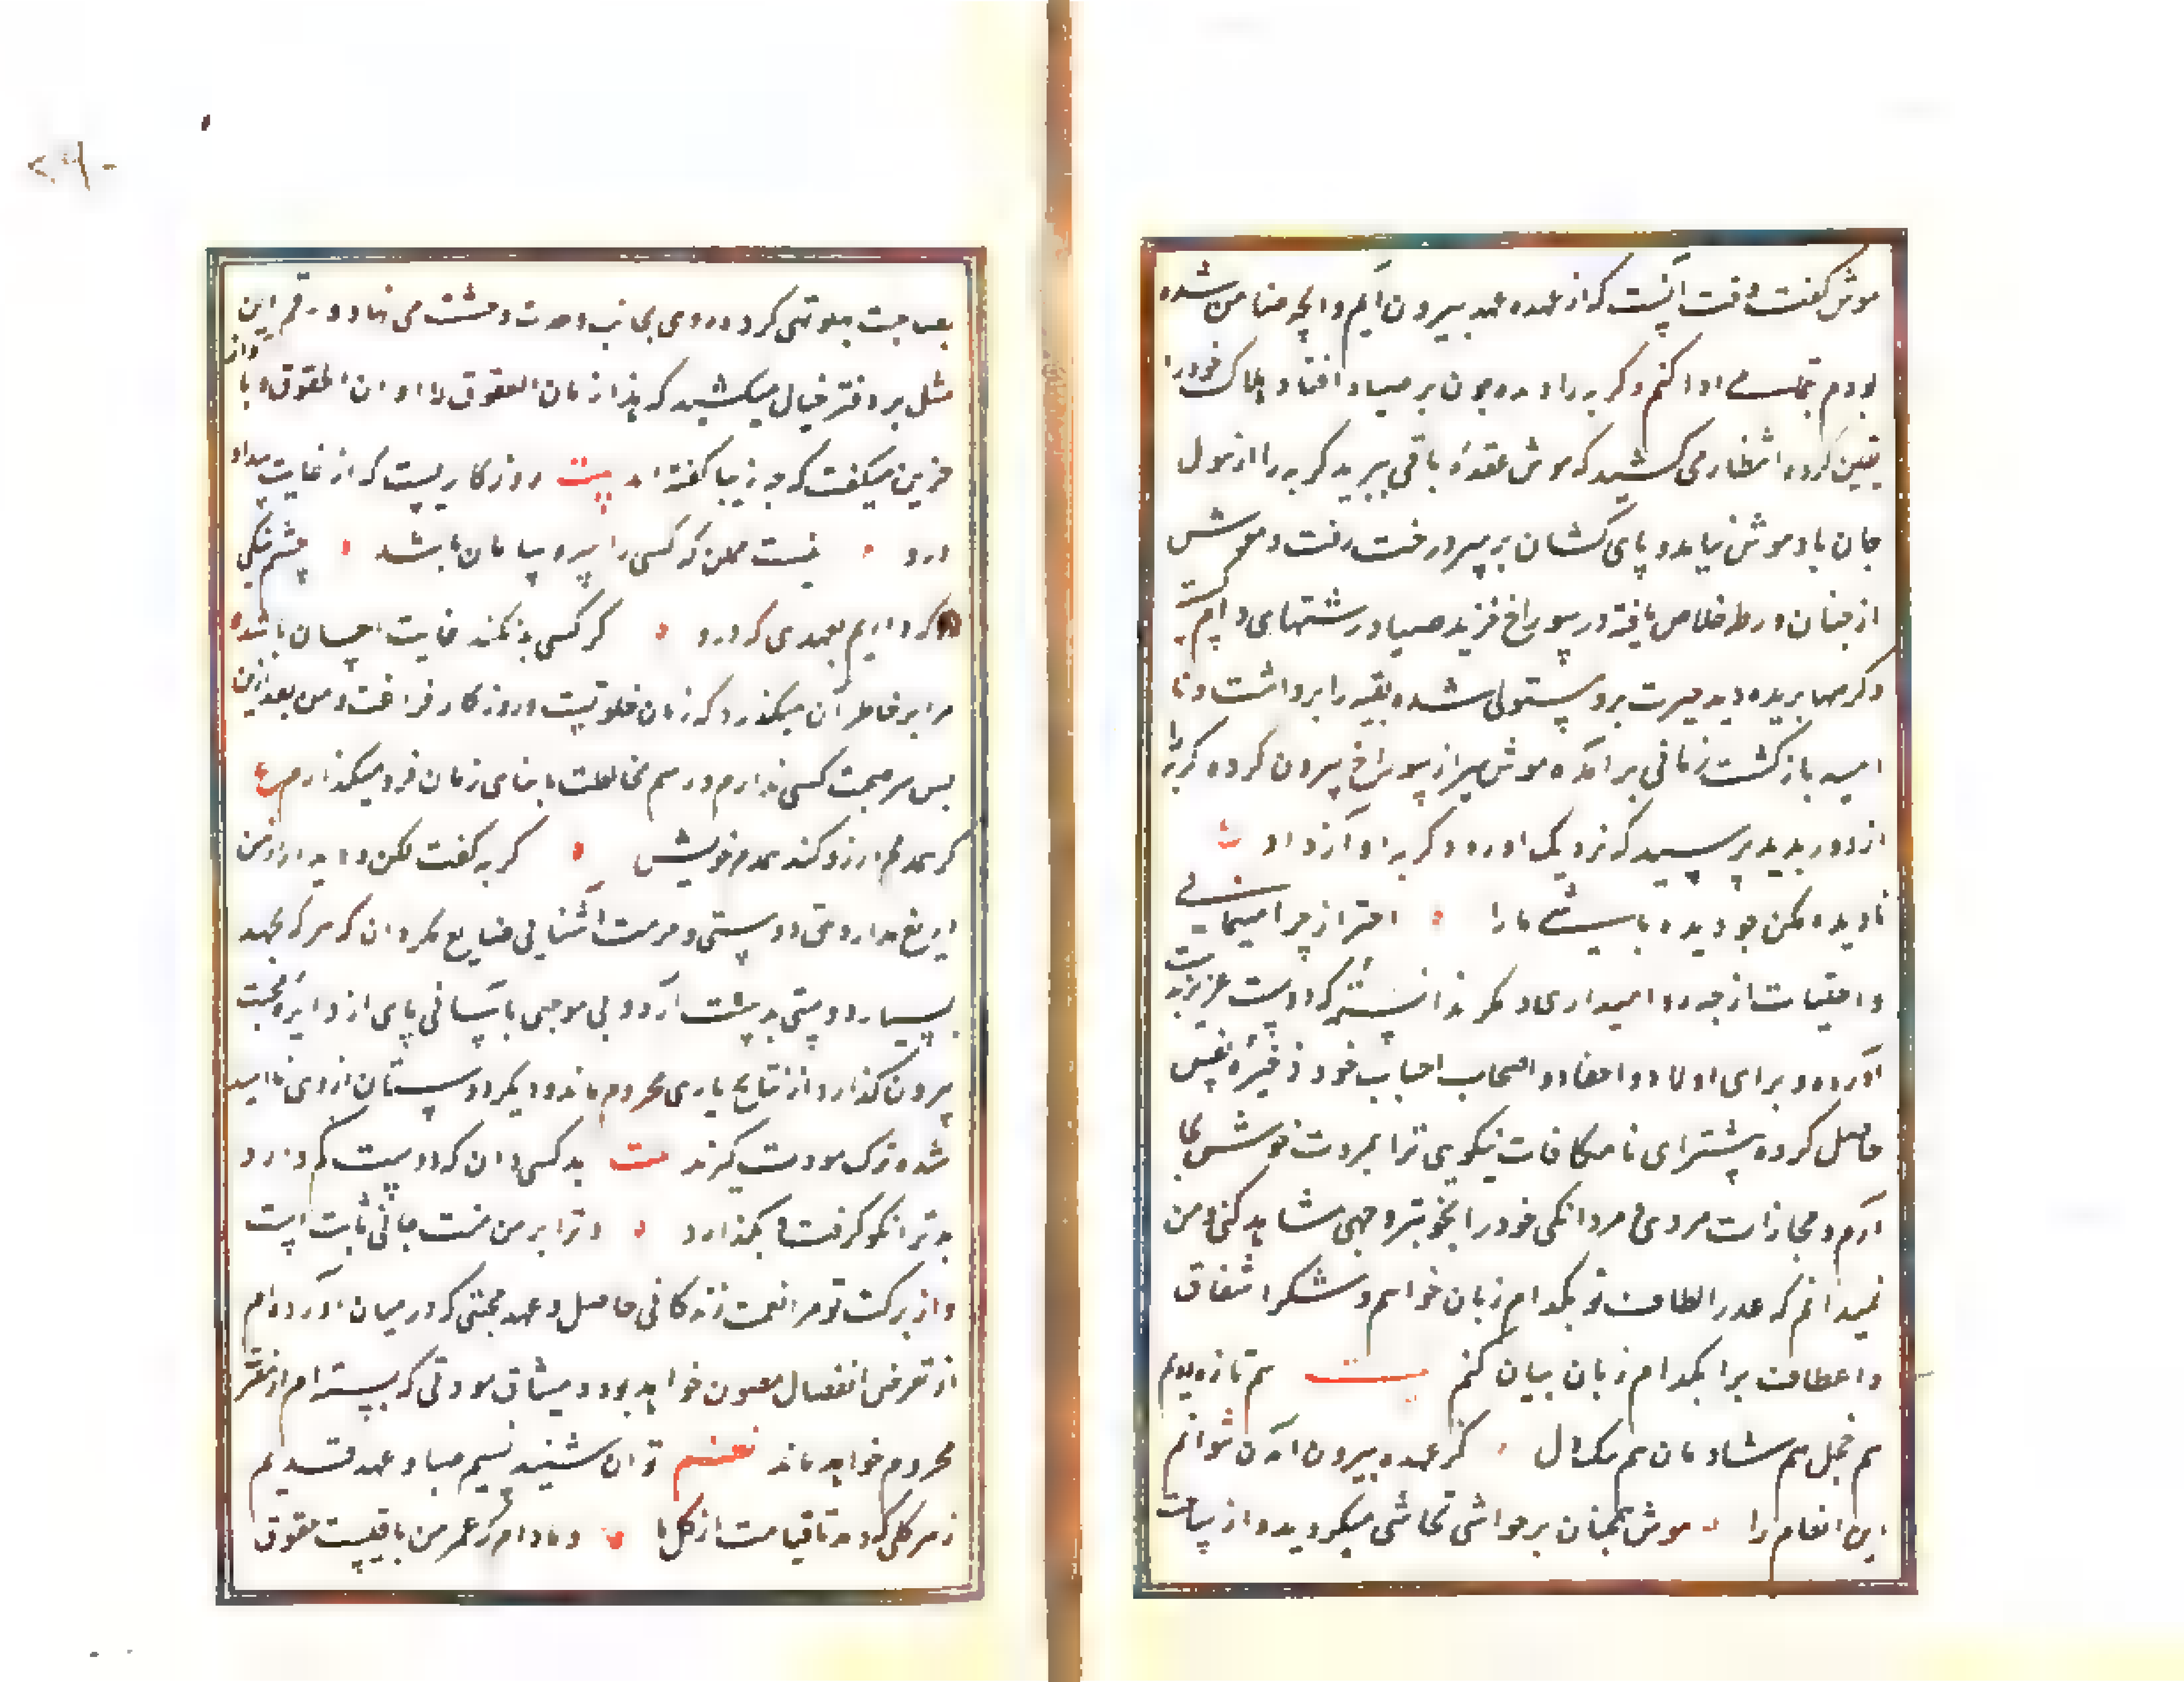 موش گفت وقت آنست که از عهده عهد بیرون آیم و آنچه ضامن شده
بودم بتمامے ادا کنم و گربه را دیده چون بر صیاد افتاد هلاک خود را
یقین کرده انتظار می کشید که موش عقدهٔ باقی ببرید گربه را از هول
جان یاد موش نیامد و پای کشان بر سر درخت رفت و موش
از چنان ورطه خلاص یافته در سوراخ خزید صیاد رشتهای دام گسسته
و گرهها بریده دید حیرت برو مستولی شده بقیه را برداشت و نا
امید بازگشت زمانی برآمد موش سر از سوراخ بیرون کرده گربه را
از دور بدید پرسید که نزدیک او رود گربه آواز داد
نادیده مکن چو دیده باشے ما را احتراز چرا مینمائی
و اجتناب از چه روا میداری و مگر ندانسته که دوست عزیز بدست
آورده و برای اولاد و احفاد و اصحاب احباب خود ذخیرهٔ نفیس
حاصل کرده پیشتر آی تا مکافات نیکویی ترا بمروت خویش بجا
آرم و مجازات مردی و مردانگی خود را بخوبتر وجهی مشاهده کنی و من
نمیدانم که عذر الطاف تو بکدام زبان خواهم و شکر اشفاق
و اعطافت را بکدام زبان بیان کنم بیت هم تازه رویم
هم خجل هم شادمان هم تنگدل کز عهده بیرون آمدن نتوانم
این انعام را موش همچنان بر حواشی تحاشی میگردید و از بساط
مصاحبت پهلو تهی کرده روی بجانب وحدت و وحشت می نهاد و رقم این
مثل بر دفتر خیال میکشید که هذا زمان العقوق لا اوان الحقوق و با
حزین میگفت که چه زیبا گفته اند بیت روزگاریست که از غایت بیداد
درو نیست ممکن که کسی را سر و سامان باشد چشم نیکی
که داریم بعهدی که درو گر کسی بد نکند غایت احسان باشد
مرا بر خاطر آن میگذرد که زمان خلوتست و روزگار فراغت و من بعد ازین
بس سر صحبت کسی ندارم و رسم مخالطت با بنای زمان فرو میگذارم مصرع
گر همدم آرزو کند همدم خویش گربه گفت مکن و دیدار از من
دریغ مدار و حق دوستی و حرمت آشنایی ضایع مگردان که هر که بجهد
بسیار دوستی بدست آرد و بی موجبی بآسانی پای از دایرهٔ محبت
بیرون گذارد از نتایج یاری محروم ماند و دیگر دوستان از وی ناامید
شده ترک مودت گیرند بیت بد کسی دان که دوست کم دارد
بدتر آنکو گرفت و بگذارد و ترا بر من منت جانی ثابت است
و از برکت تو مرا نعمت زندگانی حاصل و عهد محبتی که در میان آورده‌ام
از تعرض انفصال مصون خواهد بود و میثاق مودتی که بسته‌ام از تغیر
محروم خواهد ماند نظم توان شنید نسیم صبا و عهد قدیم
ز هر گلی که دمد تا قیامت از گل ما و مادام که عمر من باقیست حقوق